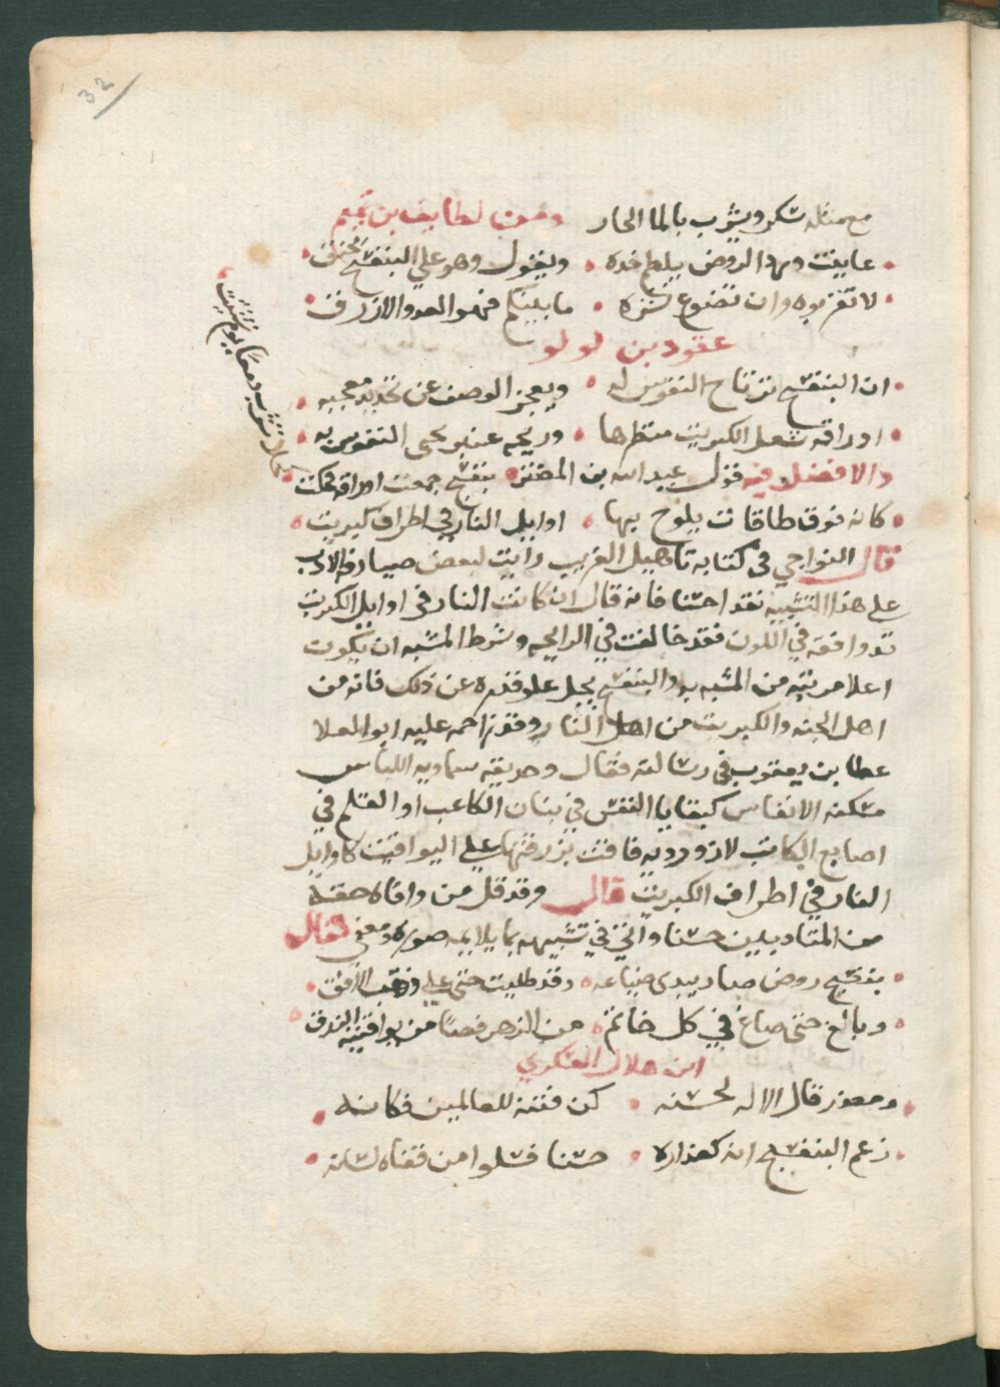 32
مع مثله سكر ويشرب بالما الحار ومن لطايف بن تميم
عاينت ورد الروض يلطم خده • ويقول وهو على البنفسج محنق
لا تقربوه وان تضوع نشره • ما بينكم فهو العدو الازرق
عقود بن لولو
ان البنفسج ترتاح النفوس له • ويعجز الوصف عن تحديد معجبه
اوراقه شعل الكبريت منظرها • وريحه عنبر يحيى النفوس به
والافضل فيه قول عبد الله بن المعتز • بنفسج جمعت اوراقه فحكت
كحلا تشرب دمعا يوم تشتيت
كانه فوق طاقات يلوح بها • اوايل النار في اطراف كبريت
قال النواجي في كتابه تاهيل الغريب رايت لبعض صيارفة الادب
على هذا التشبيه نقدا حسنا فانه قال ان كانت النار في اوايل الكبريت
قد وافقه في اللون فقد خالفت في الرايحه وشرط المشبه ان يكون
اعلا مرتبه من المشبه به والبنفسج يجل علو قدره عن ذلك فانه من
اهل الجنه والكبريت من اهل النار وقد زاحمه عليه ابو العلا
عطا بن يعقوب في رسالته فقال وحديقه سماويه اللباس
مسكنه الانفاس كبقايا النقش في بنان الكاعب او القلم في
اصابع الكاتب لازورديه فاقت بزرقتها على اليواقيت كاوايل
النار في اطراف الكبريت قال وقد قل من وافاه حقه
من المتادبين حسنا واتى في تشبيهه بما يلايمه صوره ومعنى فقال
بنفسج روض صار يبدى صناعه • وقد طليت حتى على وذهب الافق
وبالغ حتى صاغ في كل خاتم • من الزهر فصا من يواقيته الزرق
ابن هلال العسكري
ومعذر قال الاله لحسنه • كن فتنه للعالمين فكانه
زعم البنفسج انه كعذاره • حسنا فسلوا من قفاه لسانه